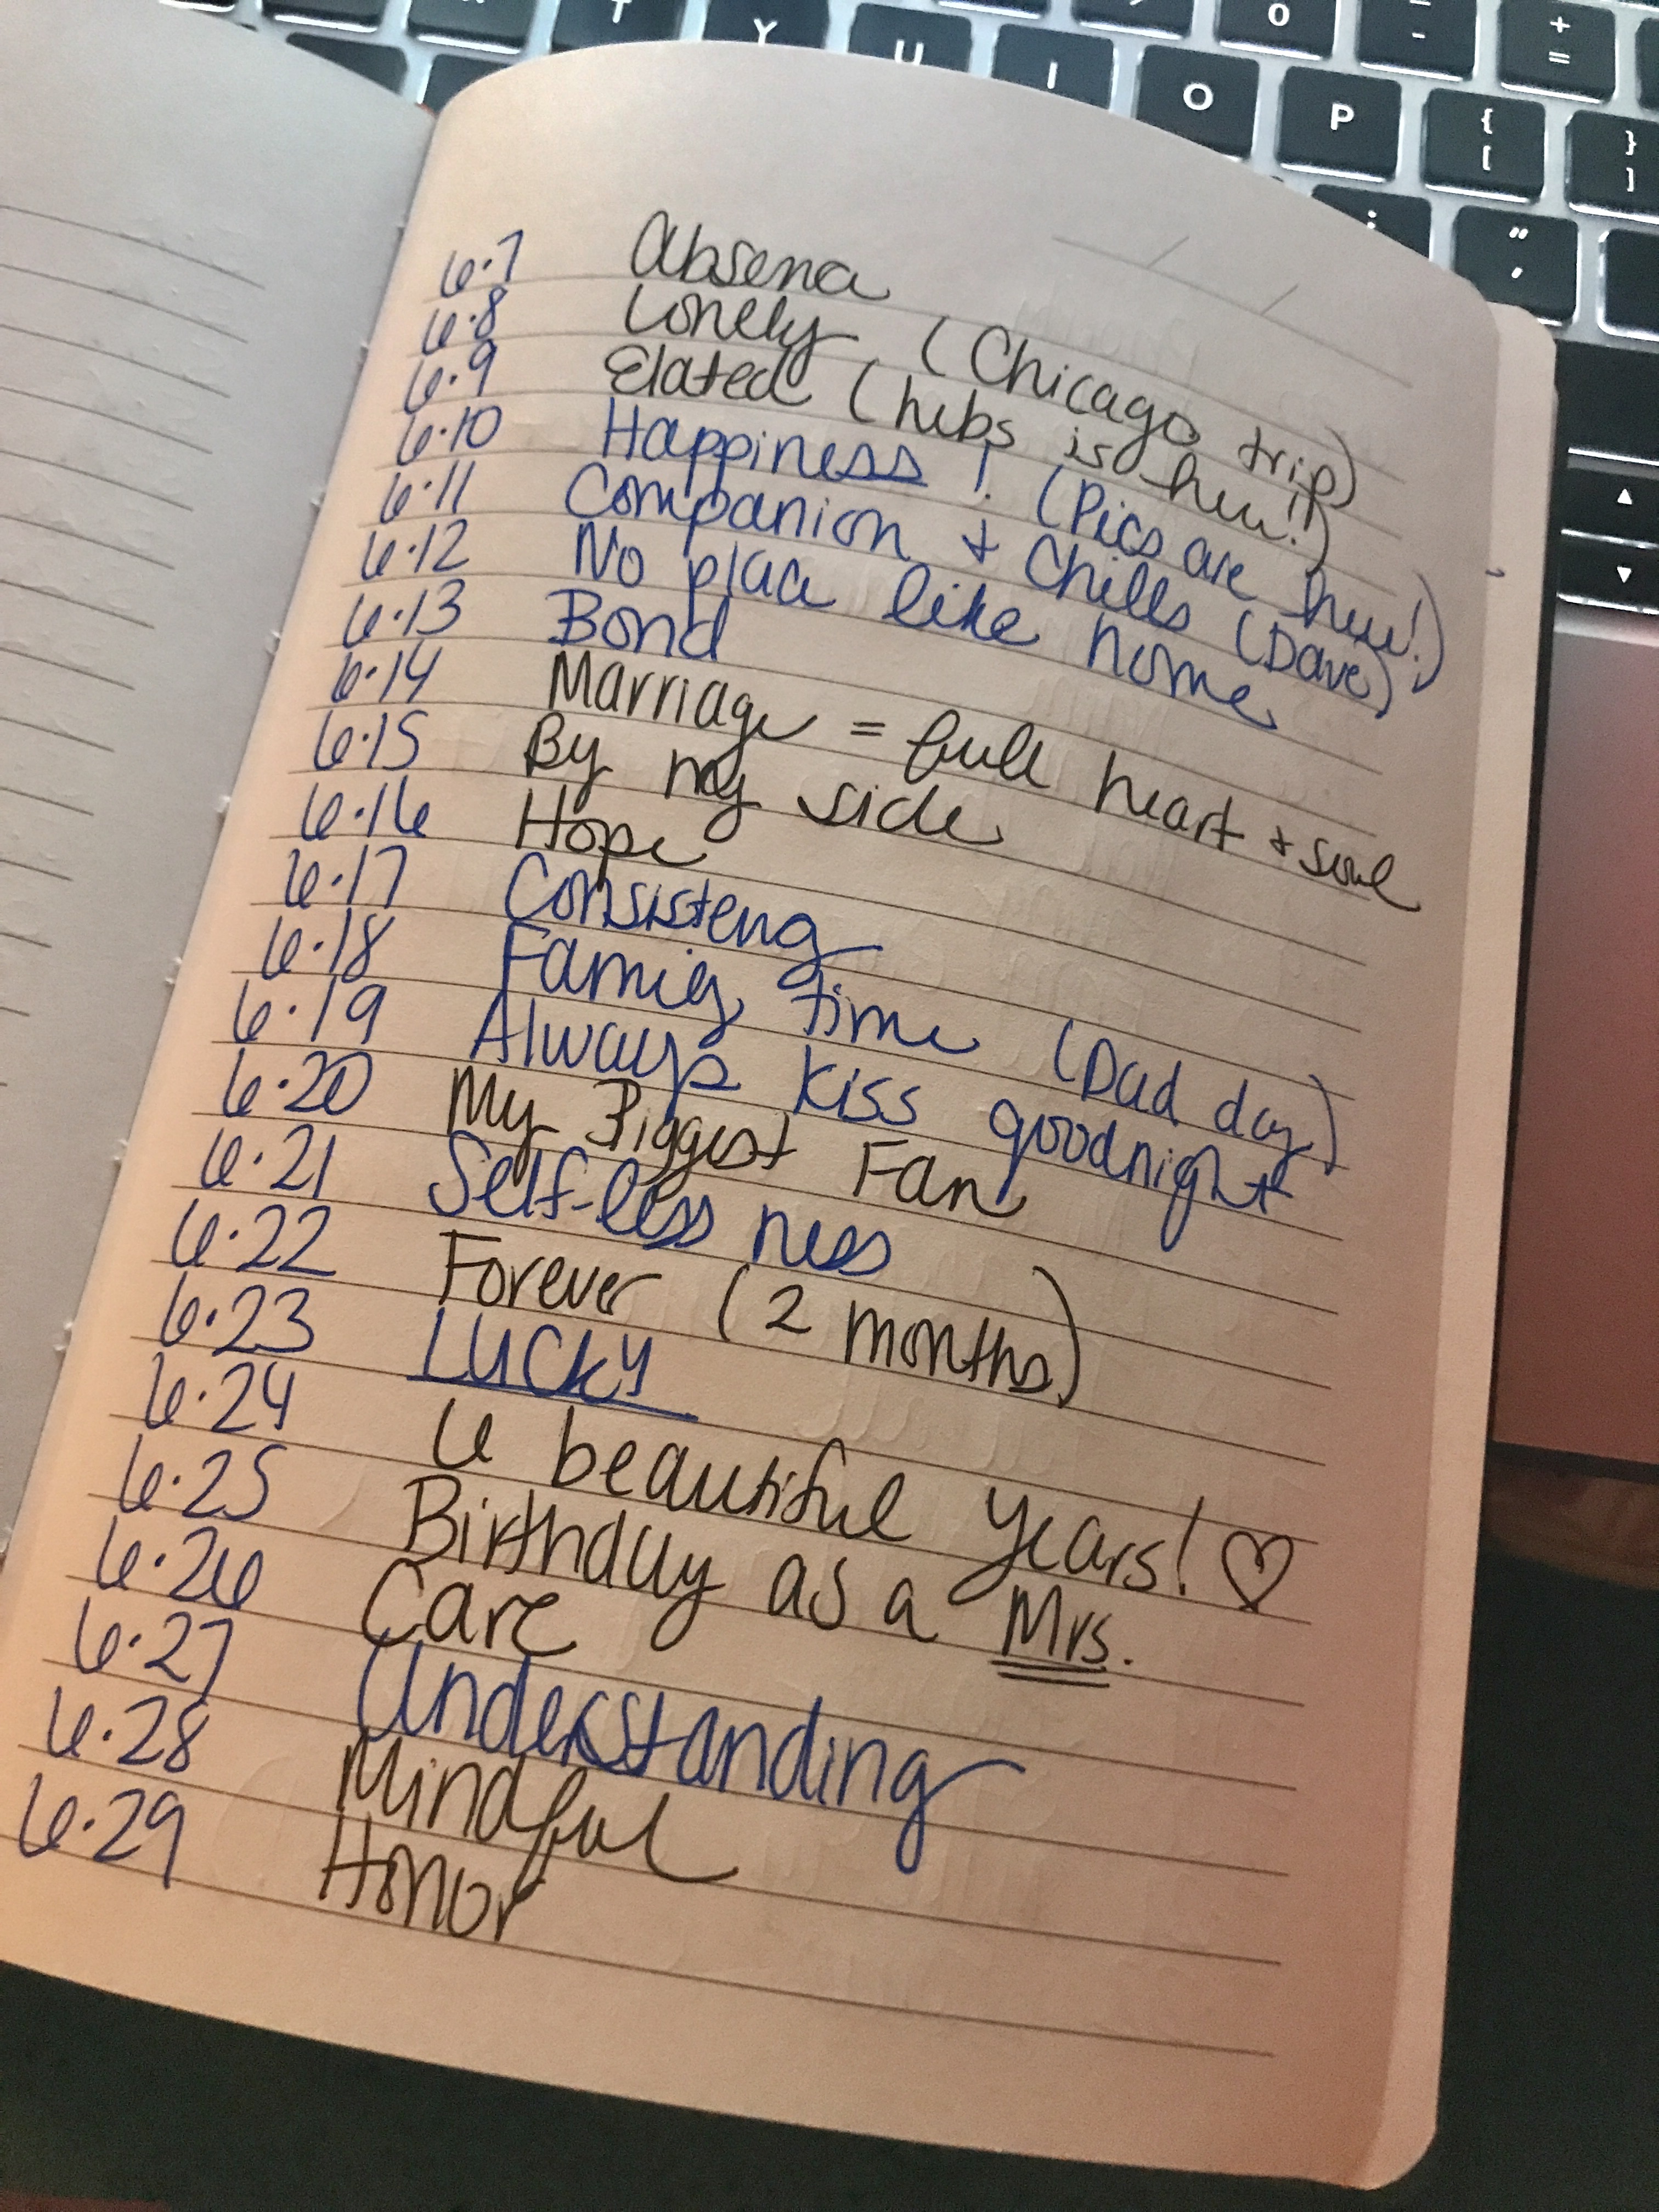 T Y U I O P
0
-
+
=
{
[
}
]
"
'
6.7 Absence
6.8 Lonely (Chicago trip)
6.9 Elated (hubs is here!!)
6.10 Happiness! (Pics are here!)
6.11 Companion + Chills (Dave)
6.12 No place like home
6.13 Bond
6.14 Marriage = full heart + soul
6.15 By my side
6.16 Hope
6.17 Consistency
6.18 Family time (Dad day)
6.19 Always kiss goodnight
6.20 My Biggest Fan
6.21 Self-less ness
6.22 Forever (2 months)
6.23 Lucky
6.24 6 beautiful years! ♡
6.25 Birthday as a Mrs.
6.26 Care
6.27 Understanding
6.28 Mindful
6.29 Honor